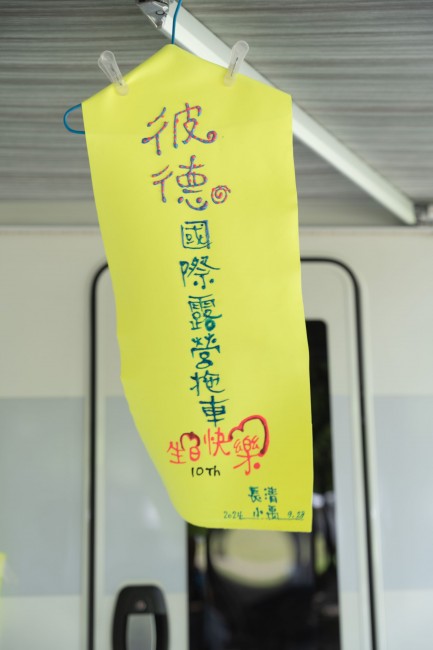 彼德
國際露營拖車
生日快樂
10Th
長清
小惠
2024 9.28